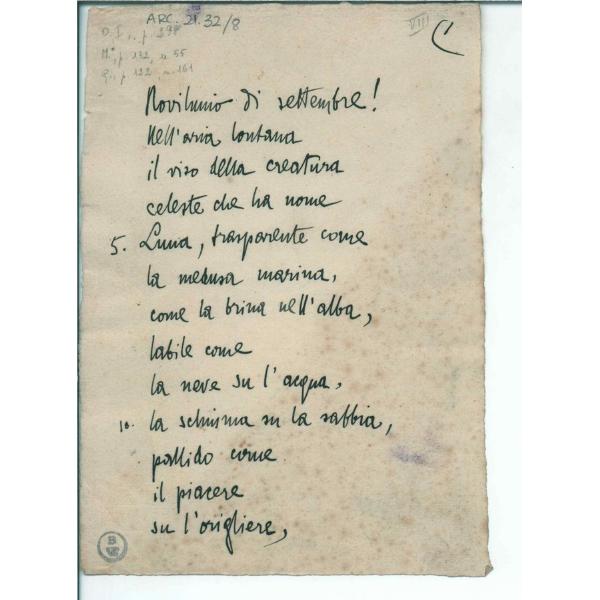 ARC. 21.32/8
VIII
Novilunio di settembre!
Nell'aria lontana
il viso della creatura
celeste che ha nome
5. Luna, trasparente come
la medusa marina,
come la brina nell'alba,
labile come
la neve su l'acqua,
10. la schiuma su la sabbia,
pallido come
il piacere
su l'origliere,